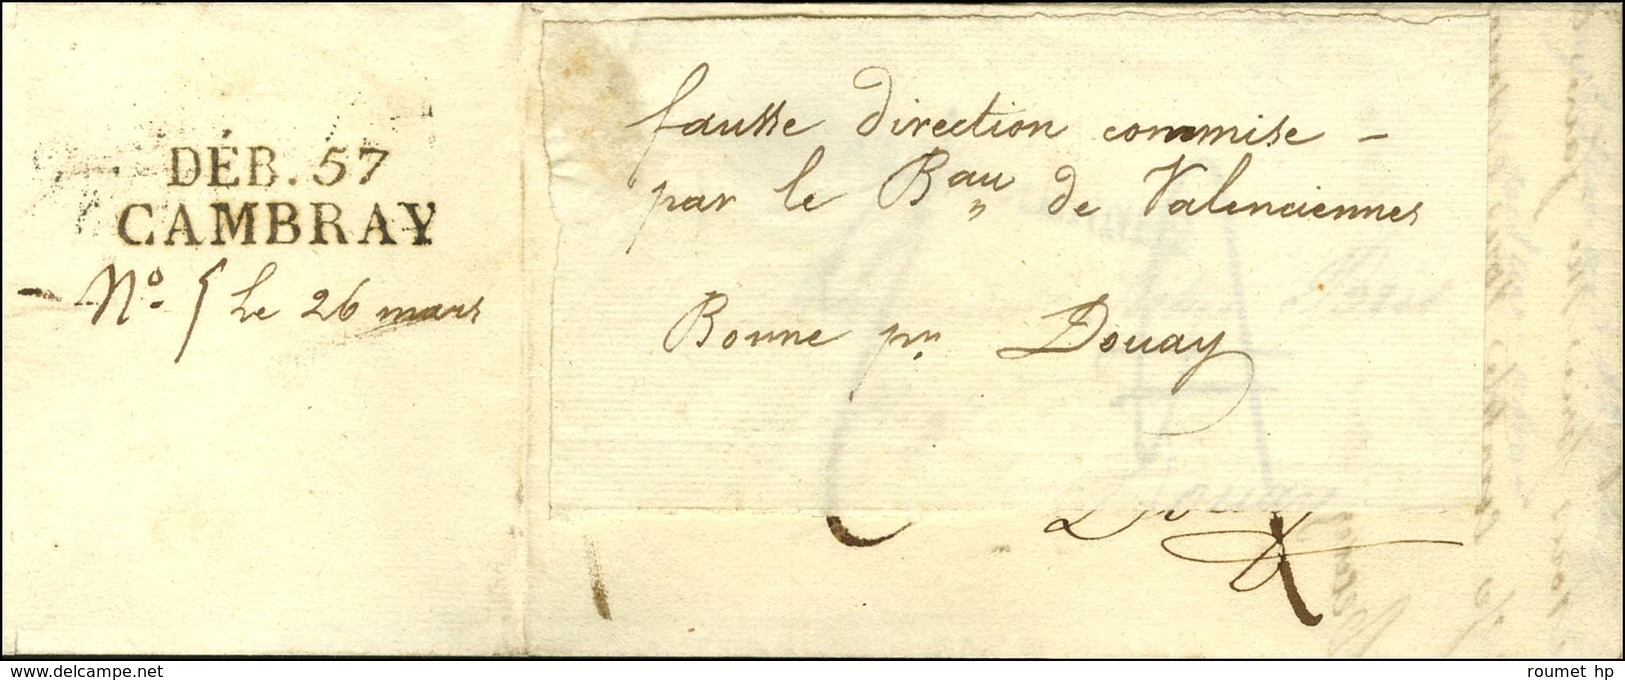 DÉB. 57
CAMBRAY
N° 5 Le 26 mars
fausse direction commise -
par le Bau de Valenciennes
Bonne pr Douay
Douay
roumet hp